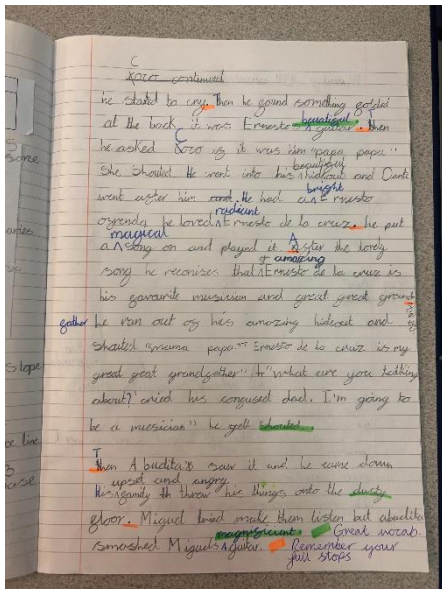 C
Koco continued
he started to cry. Then he gound something golded
at the back it was Ernesto's beautigul guitar. Then
he asked Coco ig it was him "papa papa"
She should. He went into his beautigul hideout and Dante
went agter him and. He had a bright Ernesto
ogrenda he loved radiant Ernesto de la cruz. he put
a magical song on and played it. Agter the lovely
song he reconises that amazing Ernesto de la cruz is
his gavourite musician and great great grand
gather he ran out og his amazing hideout and
shouted "mama papa" Ernesto de la cruz is my
great great grandgather" "What are you talking
about?" cried his congused dad. I'm going to
be a muesician" he yell shouted.
Then Abudita saw it and he came down
upset and angry.
His gamily th threw his things onto the dusty
gloor. Miguel tried make them listen but abudita
smashed Miguels magnigicient guitar.
Great vocab.
Remember your
full stops
some
aries
slope
line
3